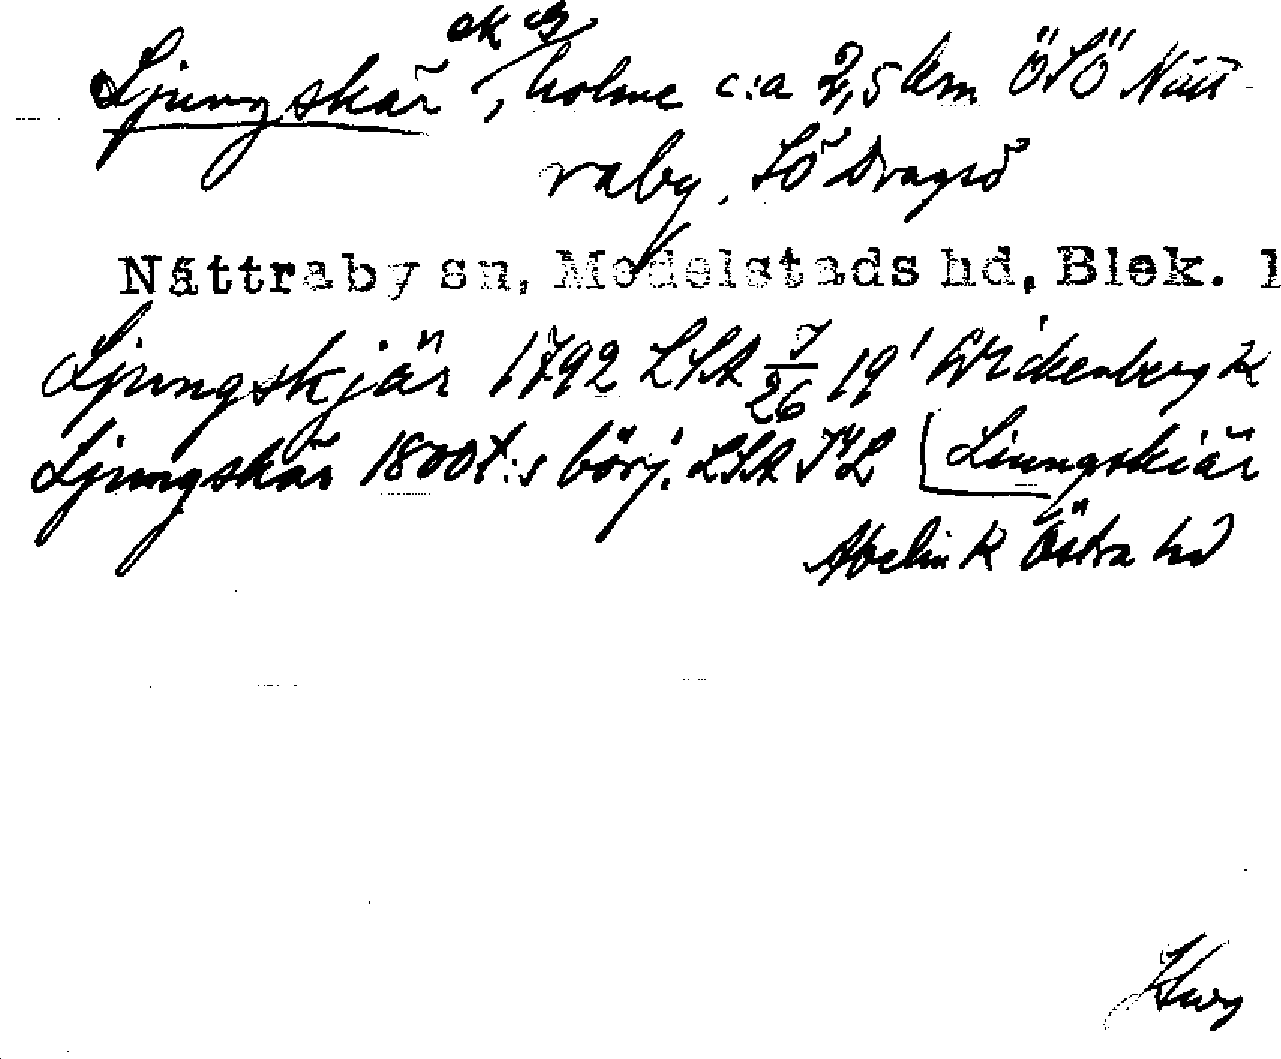 ek B
Ljungskär, holme c:a 2,5 km ÖSÖ Nätt-
raby, SÖ Dragsö
Nättraby sn, Medelstads hd, Blek. l
Ljungskjär 1792 LSA J/26 19¹ Wickenberg K
Ljungskär 1800t:s börj. LSA [Liungskiär
Abelin K Östra hd